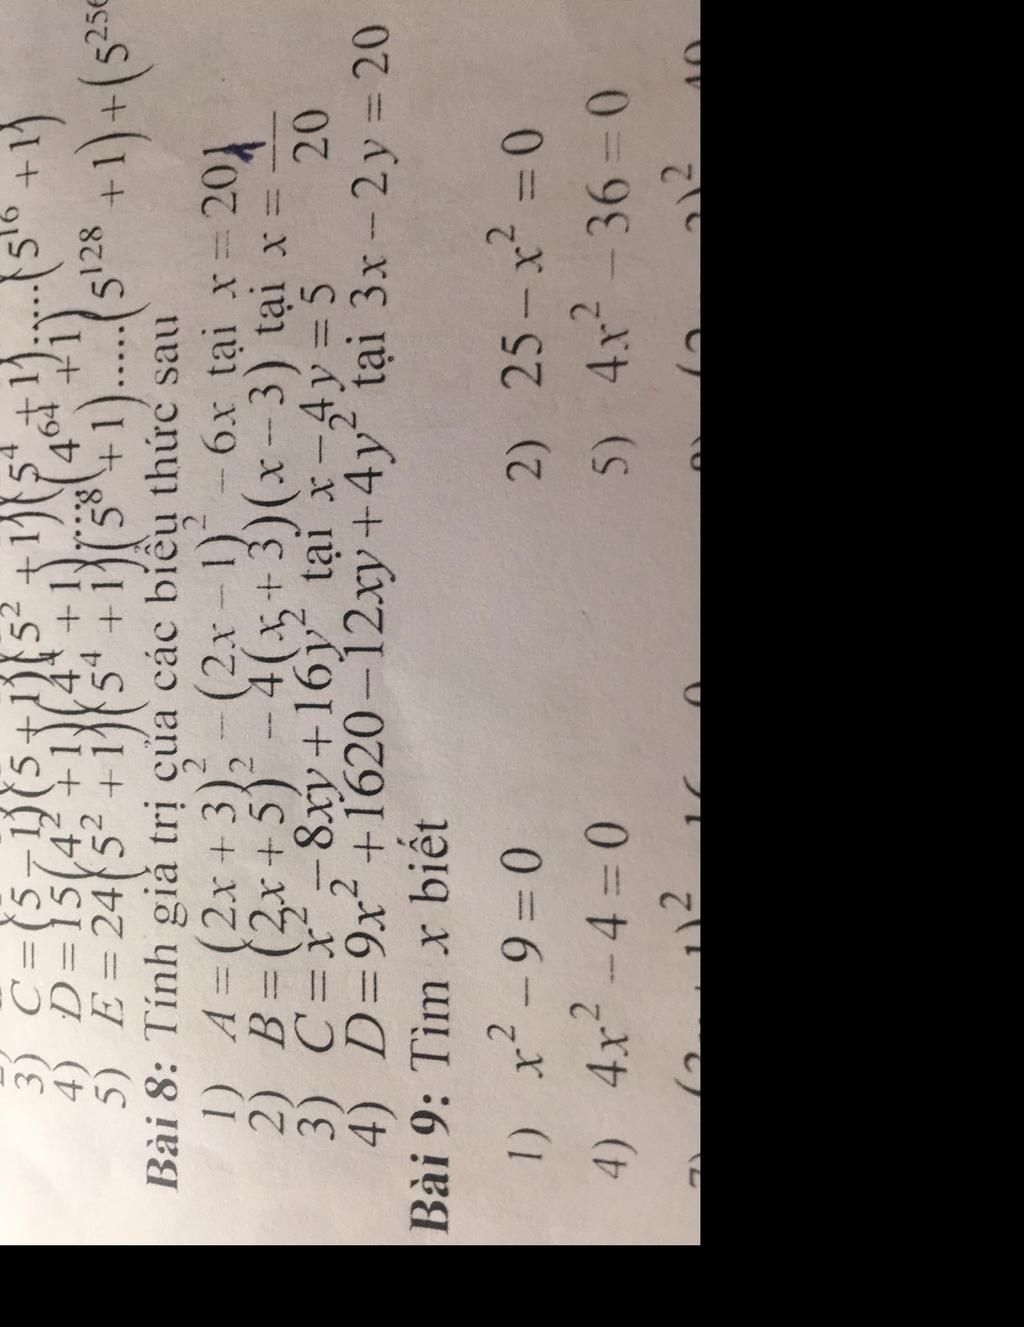 3) C = (5 − 1)(5 + 1)(5² + 1)(5⁴ + 1).....(5¹⁶ + 1)
4) D = 15(4² + 1)(4⁴ + 1)....(4⁶⁴ + 1)
5) E = 24(5² + 1)(5⁴ + 1)(5⁸ + 1).....(5¹²⁸ + 1) + (5²⁵⁶
Bài 8: Tính giá trị của các biểu thức sau
1) A = (2x + 3)² − (2x − 1)² − 6x tại x = 201
2) B = (2x + 5)² − 4(x + 3)(x − 3) tại x = 1/20
3) C = x² − 8xy + 16y² tại x − 4y = 5
4) D = 9x² + 1620 − 12xy + 4y² tại 3x − 2y = 20
Bài 9: Tìm x biết
1) x² − 9 = 0 2) 25 − x² = 0
4) 4x² − 4 = 0 5) 4x² − 36 = 0